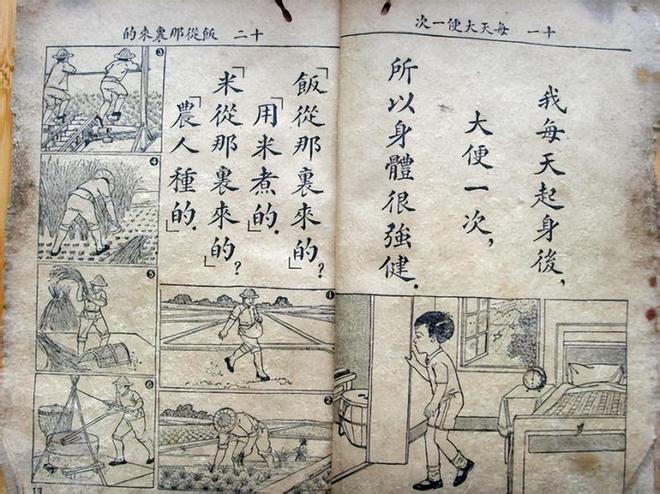 十一 每天大便一次
我每天起身後，
大便一次，
所以身體很強健．
十二 飯從那裏來的
「飯從那裏來的？」
「用米煮的．」
「米從那裏來的？」
「農人種的．」
1
2
3
4
5
6
13